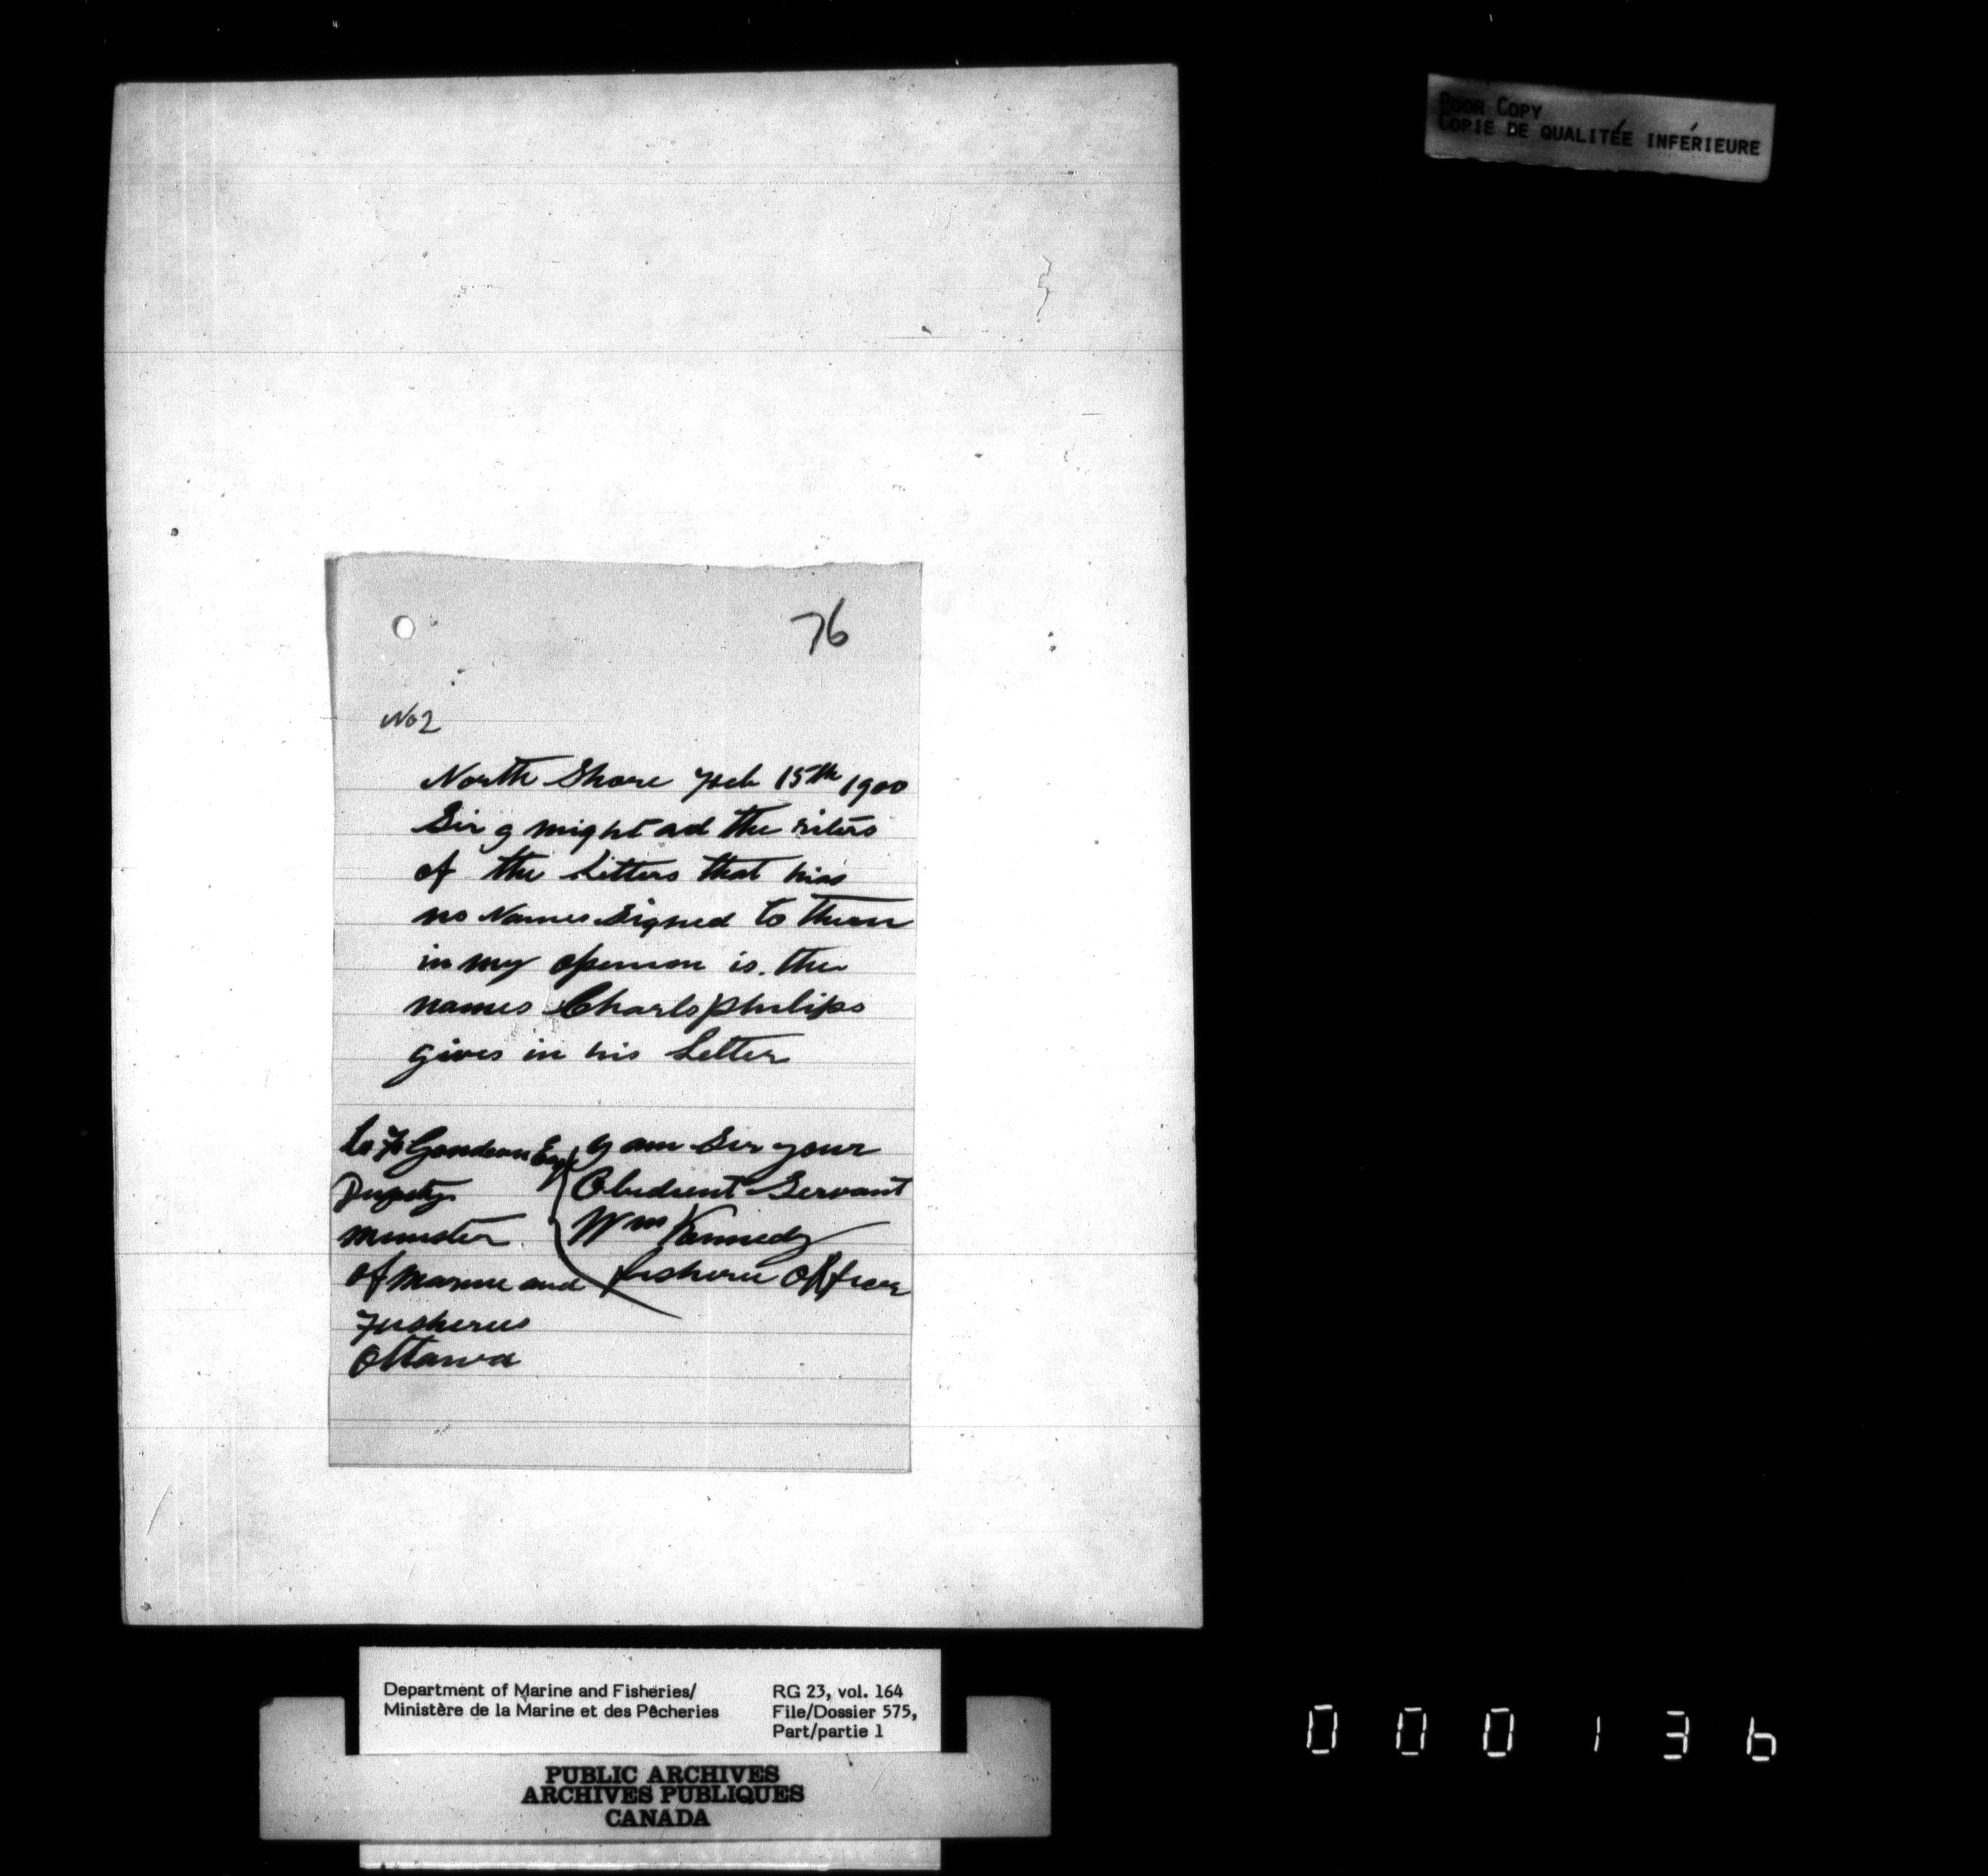 POOR COPY
COPIE DE QUALITÉE INFÉRIEURE
76
No 2
North Shore Feb 15th 1900
Sir I might ad the riters
of the Letters that has
no Names Signed to them
in my openion is the
names Charls philips
gives in his Letter
to F Gourdeau Esq
Deputy
minister
of marine and
Fisheries
Ottawa
I am Sir your
Obedient Servant
Wm Kennedy
fisherie Officer
Department of Marine and Fisheries/
Ministère de la Marine et des Pêcheries
RG 23, vol. 164
File/Dossier 575,
Part/partie 1
PUBLIC ARCHIVES
ARCHIVES PUBLIQUES
CANADA
000136